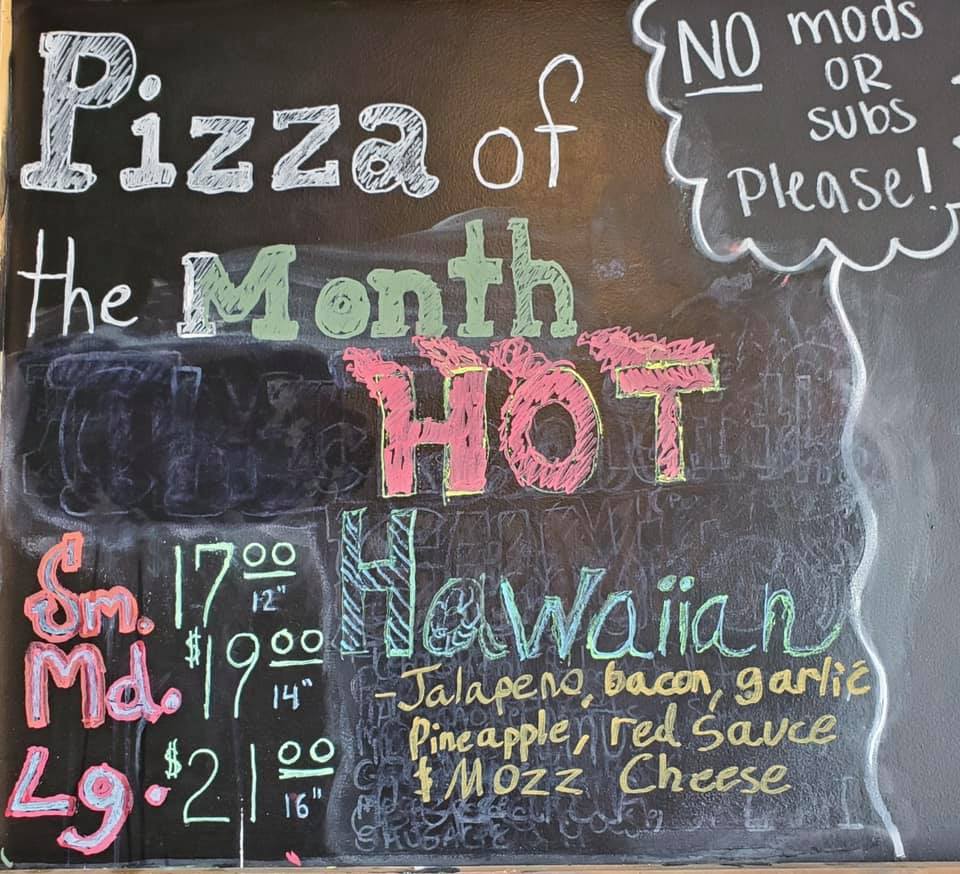 Pizza of
the Month
HOT
Hawaiian
- Jalapeno, bacon, garlic
Pineapple, red Sauce
& Mozz Cheese
Sm. 17 00 12"
Md. $19 00 14"
Lg. $21 00 16"
NO mods
OR
subs
Please!